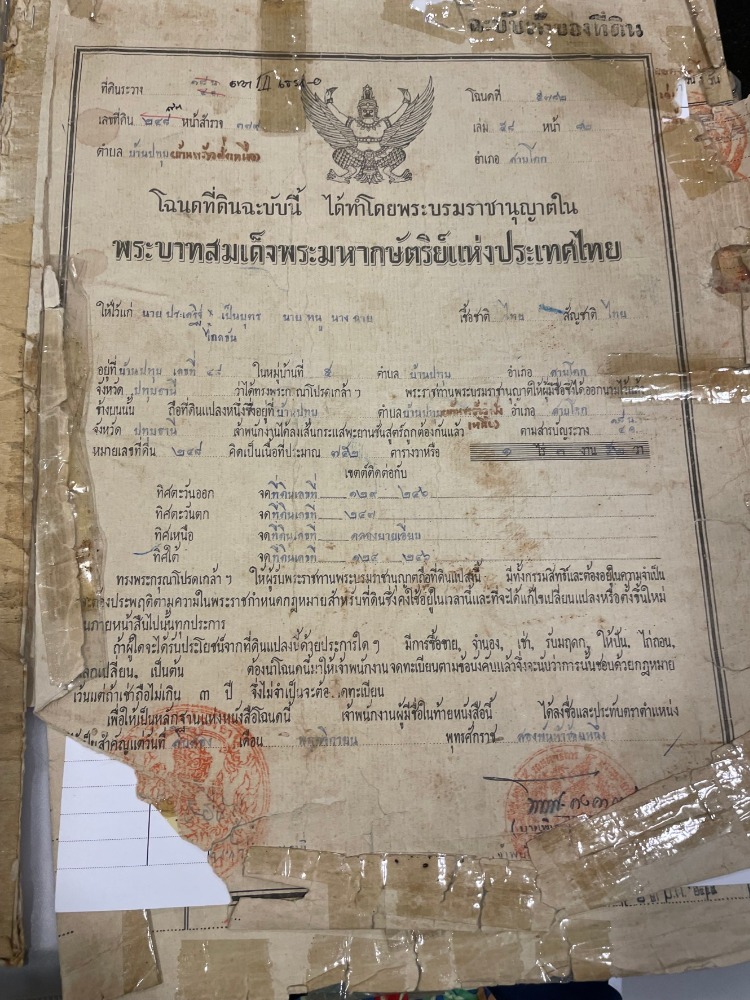 ฉะบับสำหรับเจ้าของที่ดิน
ที่ดินระวาง
โฉนดที่ ๕๗๗๒
เลขที่ดิน ๒๔๘ หน้าสำรวจ ๓๗๙
เล่ม ๕๘ หน้า ๗๒
ตำบล บ้านปทุม
อำเภอ สามโคก
โฉนดที่ดินฉะบับนี้ ได้ทำโดยพระบรมราชานุญาตใน
พระบาทสมเด็จพระมหากษัตริย์แห่งประเทศไทย
ให้ไว้แก่ นาย ประเสริฐ เป็นบุตร นาย หนู นาง ฉาย เชื้อชาติ ไทย สัญชาติ ไทย
อยู่ที่ บ้านปทุม เลขที่ ๔๘ ในหมู่บ้านที่ ๕ ตำบล บ้านปทุม อำเภอ สามโคก
จังหวัด ปทุมธานี ว่าได้ทรงพระกรุณาโปรดเกล้า ฯ พระราชทานพระบรมราชานุญาตให้ผู้มีชื่อซึ่งได้ออกนามไว้แล้ว
ข้างบนนั้น ถือที่ดินแปลงหนึ่งซึ่งอยู่ที่ บ้านปทุม ตำบล บ้านปทุม อำเภอ สามโคก
จังหวัด ปทุมธานี เจ้าพนักงานได้ลงเส้นกระแสพะยานชันสูตร์ถูกต้องแล้ว ตามสารบัญระวาง
หมายเลขที่ดิน ๒๔๘ คิดเป็นเนื้อที่ประมาณ ๗๕๒ ตารางวาหรือ ๑ ไร่ ๓ งาน ๕๒ วา
เขตต์ติดต่อกับ
ทิศตะวันออก จดที่ดินเลขที่ ๑๒๙ ๒๔๖
ทิศตะวันตก จดที่ดินเลขที่ ๒๔๗
ทิศเหนือ จดที่ดินเลขที่ คลองบางเตย
ทิศใต้ จดที่ดินเลขที่ ๑๒๔ ๒๔๖
ทรงพระกรุณาโปรดเกล้า ฯ ให้ผู้รับพระราชทานพระบรมราชานุญาตถือที่ดินแปลงนี้ มีทั้งกรรมสิทธิ์และต้องอยู่ในความจำเป็น
จะต้องประพฤติตามความในพระราชกำหนดกฎหมายสำหรับที่ดินซึ่งคงใช้อยู่ในเวลานี้และที่จะได้แก้ไขเปลี่ยนแปลงหรือตั้งขึ้นใหม่
ในภายหน้าสืบไปนั้นทุกประการ
ถ้าผู้ใดจะได้รับประโยชน์จากที่ดินแปลงนี้ด้วยประการใด ๆ มีการซื้อขาย, จำนอง, เช่า, รับมฤดก, ให้ปัน, ไถ่ถอน,
แลกเปลี่ยน, เป็นต้น ต้องนำโฉนดนี้มาให้เจ้าพนักงานจดทะเบียนตามข้อบังคับแล้วจึงจะนับว่าการนั้นชอบด้วยกฎหมาย
เว้นแต่ถ้าเช่าถือไม่เกิน ๓ ปี จึงไม่จำเป็นจะต้องจดทะเบียน
เพื่อให้เป็นหลักฐานแห่งหนังสือโฉนดนี้ เจ้าพนักงานผู้มีชื่อในท้ายหนังสือนี้ ได้ลงชื่อและประทับตราตำแหน่ง
ไว้เป็นสำคัญแต่วันที่ สิบสอง เดือน พฤศจิกายน พุทธศักราช